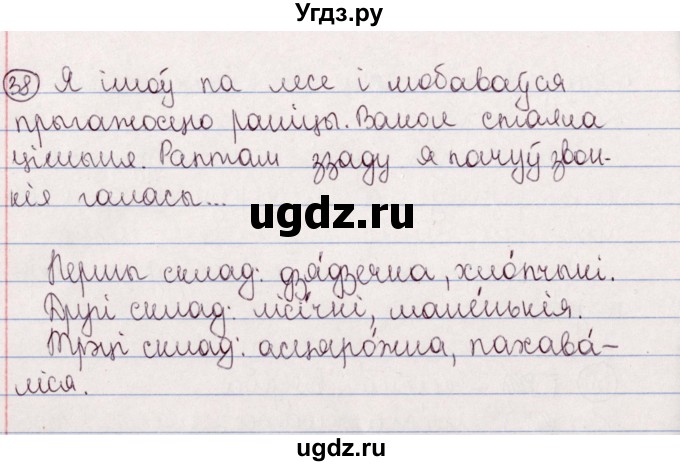 Угдз.ру
38 Я ішоў па лесе і любаваўся
прыгажосцю раніцы. Вакол стаяла
цішыня. Раптам ззаду я пачуў звон-
кія галасы...
ugdz.ru
Першы склад: дзя́дзечка, хло́пчыкі.
Другі склад: лісі́чкі, мале́нькія.
Трэці склад: асцяро́жна, пахава́-
ліся.
ugdz.ru